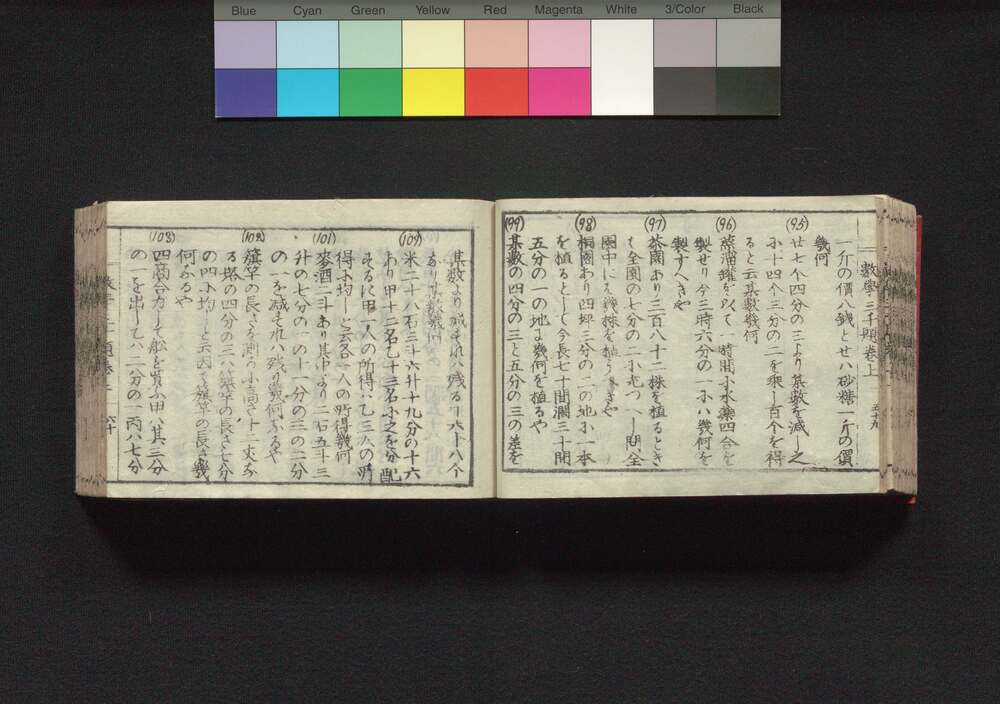 Blue Cyan Green Yellow Red Magenta White 3/Color Black
數學三千題卷上 五十九
一斤の價八錢とせハ砂糖一斤の價
幾何
(95)
廿七个四分の三より某數を減し之
に十四个三分の二を乘し百个を得
ると云其數幾何
(96)
蒸溜罐を以て一時間小水藥四合を
製せり今三時六分の一にハ幾何を
製すべきや
(97)
茶園あり三百八十二株を植るとき
ハ全園の七分の二に充つべし問全
園中に幾株を植うべきや
(98)
桐園あり四坪三分の二の地に一本
を植るとして今長七十間濶三十間
五分の一の地に幾何を植るや
(99)
某數の四分の三と五分の三の差を
其數より減すれハ殘る
(100)
米二十八石三斗六升十九分の十六
あり甲十二名乙十三名に之を分配
するに甲一人の所得ハ乙三人の所
得に均しと云各一人の所得幾何
(101)
麥酒二斗あり其中より二石五斗三
升の七分の一の十一分の三の二分
の一を減すれハ殘り幾何なるや
(102)
旗竿の長さを測るに高さ十二丈な
る塔の四分の三ハ旗竿の長さ七分
の四に均しと云因て旗竿の長さ幾
何なるや
(103)
四商合力して船を買ふ甲ハ其三分
の一を出し乙ハ二分の一丙ハ七分